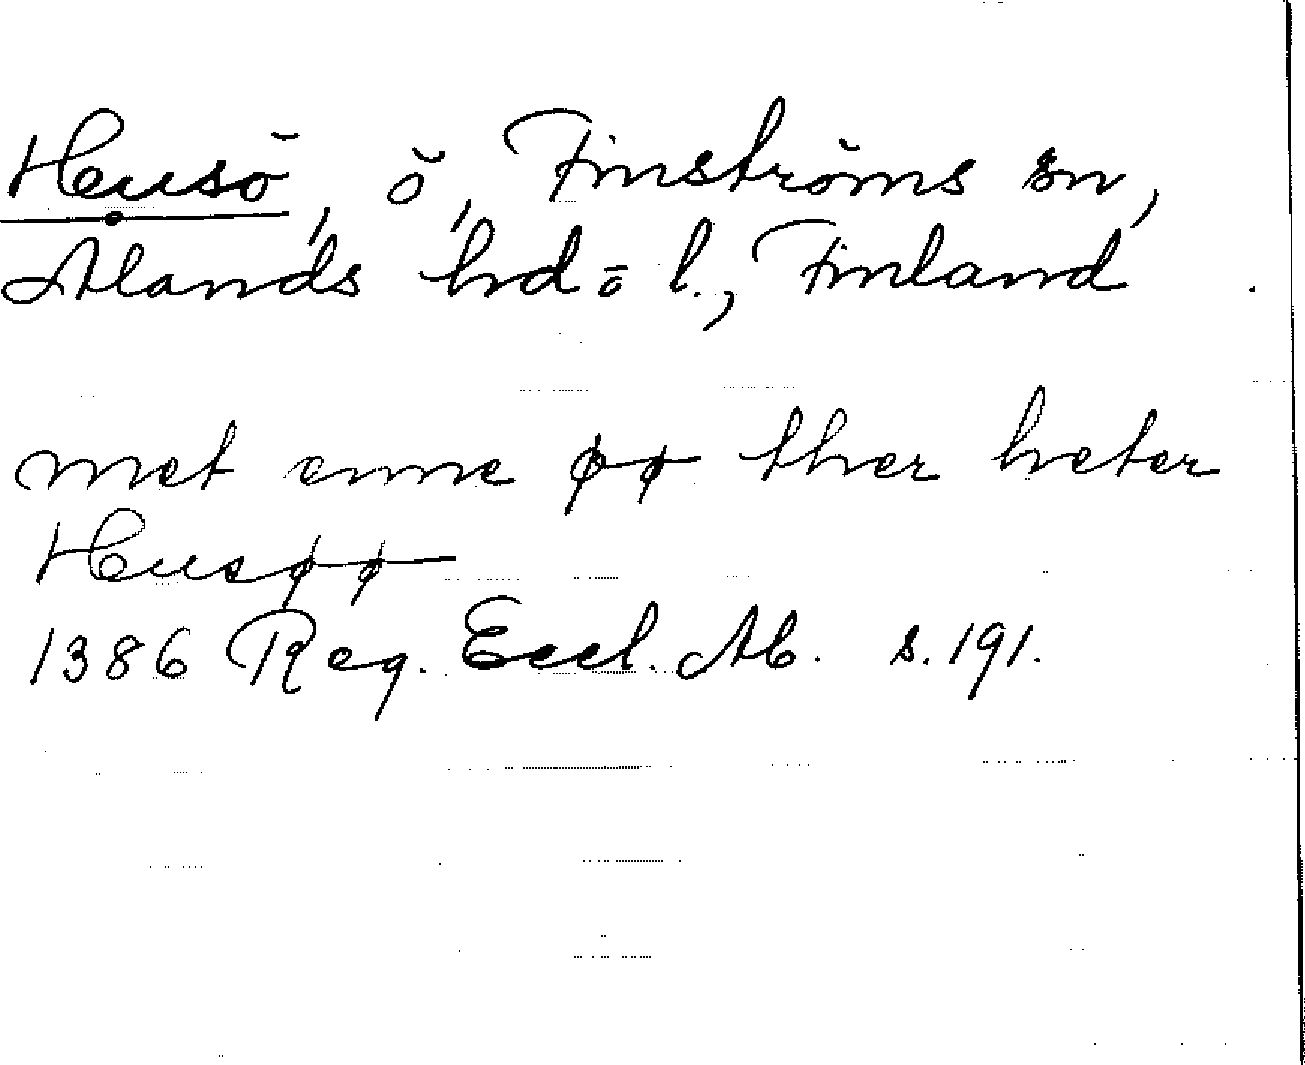 Husö, ö, Finströms sn,
Ålands hd o l., Finland.
met enne øø ther heter
Husøø
1386 Reg. Eccl. Ab. s. 191.